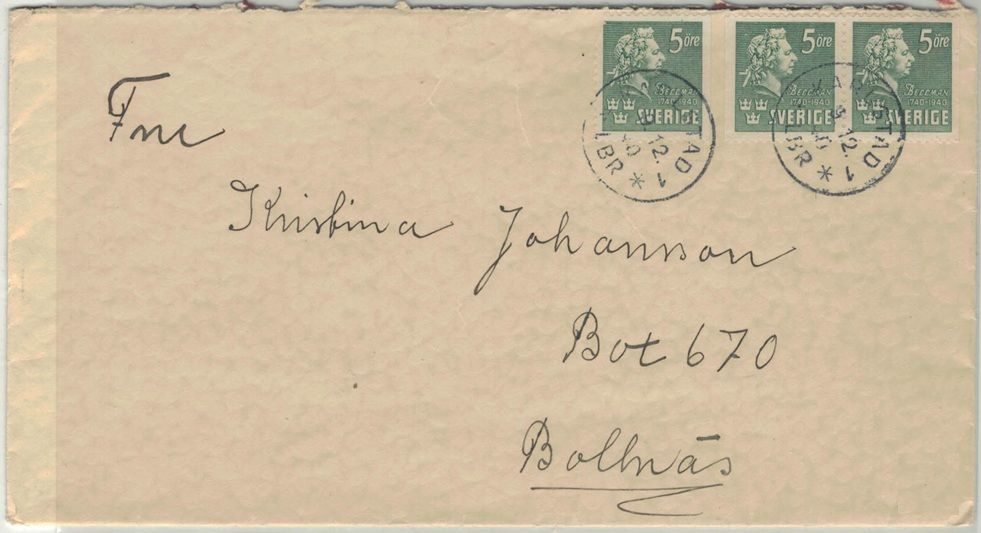 5 öre
BELLMAN
1740-1940
SVERIGE
5 öre
BELLMAN
1740-1940
SVERIGE
5 öre
BELLMAN
1740-1940
SVERIGE
12. 40
LBR
12. 40
LBR
Fru
Kristina Johansson
Box 670
Bollnäs